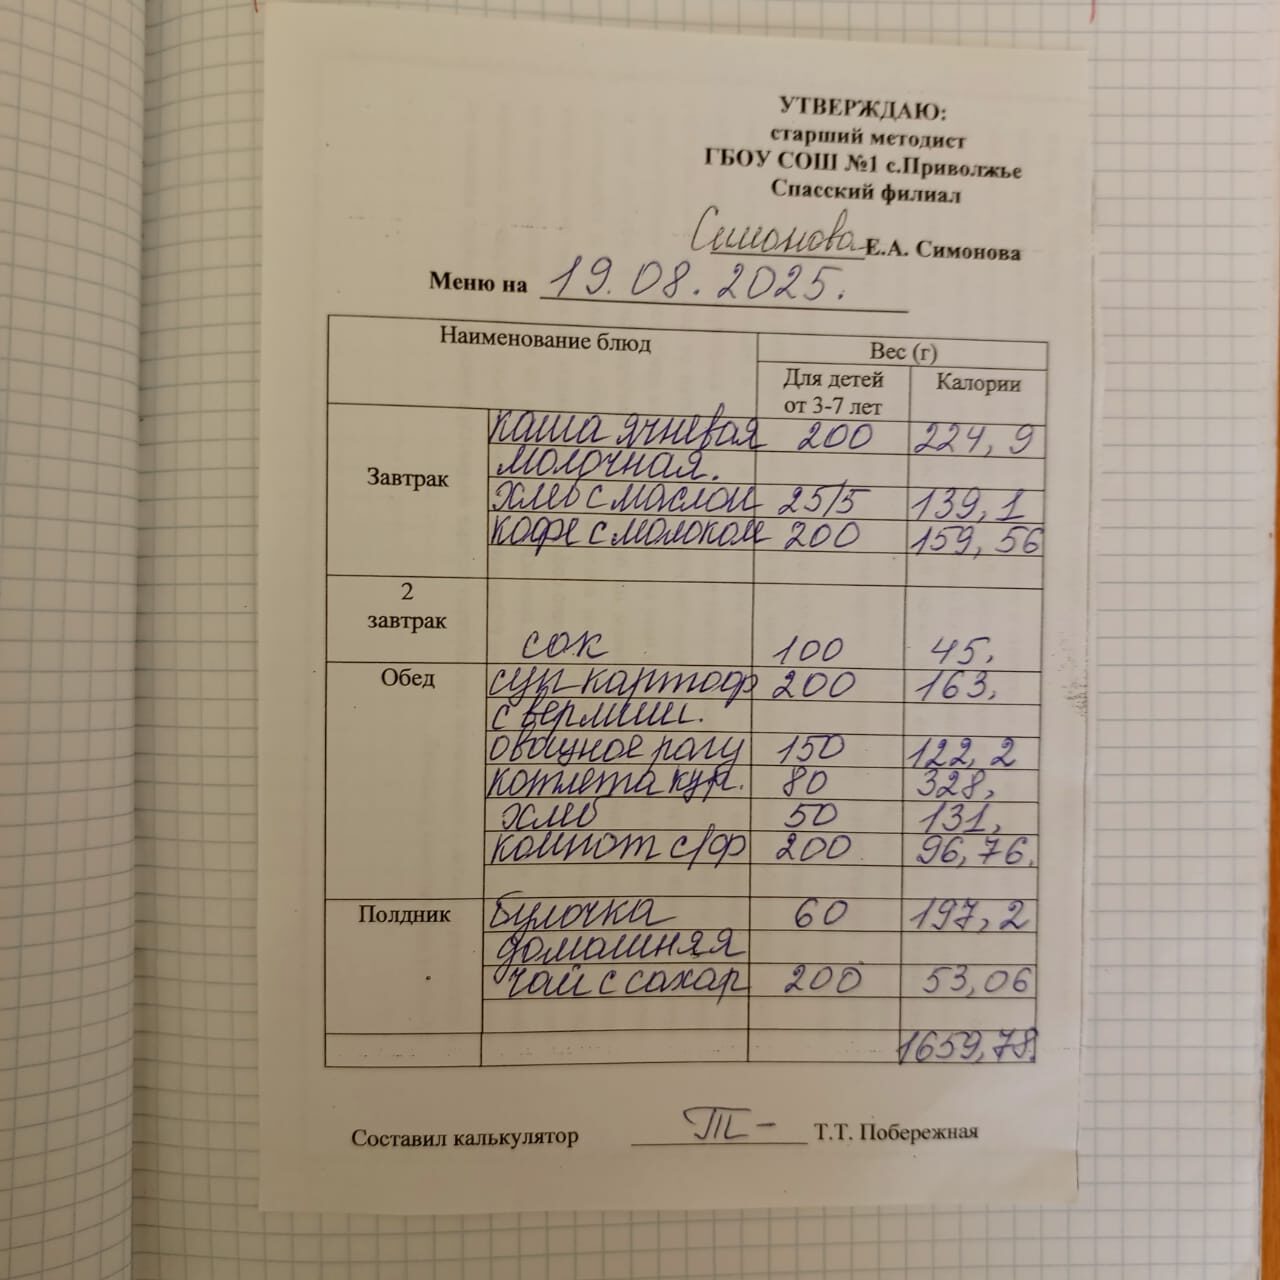 УТВЕРЖДАЮ:
старший методист
ГБОУ СОШ №1 с.Приволжье
Спасский филиал
Симонова Е.А. Симонова
Меню на 19.08.2025.
Наименование блюд Вес (г)
Для детей от 3-7 лет Калории
Завтрак каша ячневая 200 224,9
молочная.
хлеб с маслом 25/5 139,1
кофе с молоком 200 159,56
2 завтрак сок 100 45.
Обед суп картоф 200 163,
с вермиш.
овощное рагу 150 122,2
котлета кур. 80 328,
хлеб 50 131,
компот с/ф 200 96,76.
Полдник булочка 60 197,2
домашняя
чай с сахар 200 53,06
1659,78.
Составил калькулятор Т.Т. Побережная